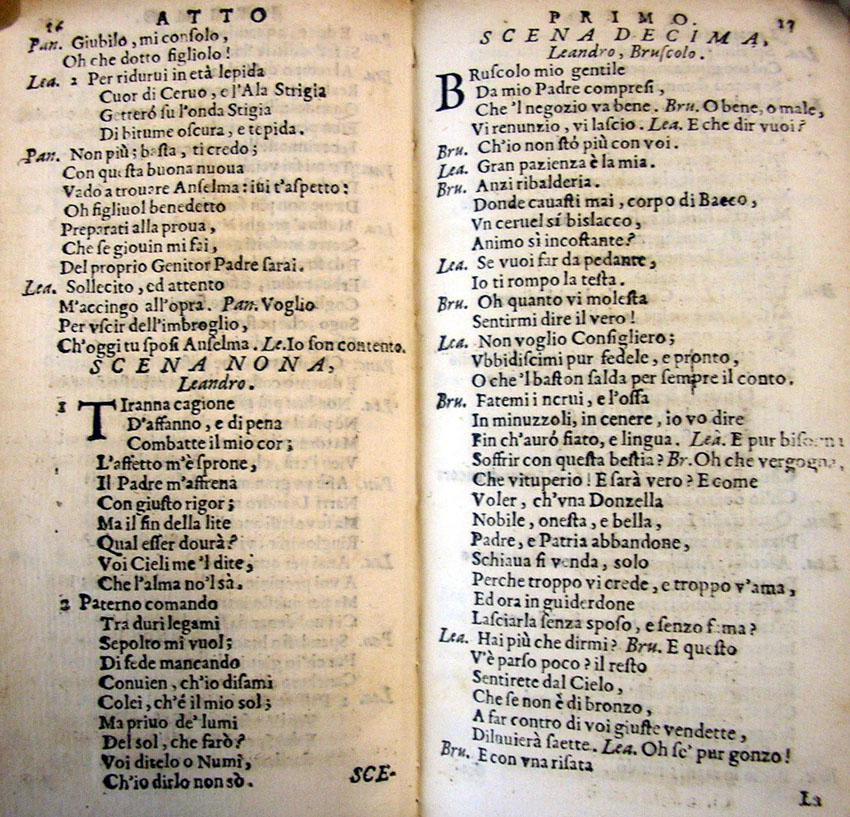 16 ATTO
Pan. Giubilo, mi consolo,
Oh che dotto figliolo!
Lea. 2 Per ridurui in età lepida
Cuor di Ceruo, e l'Ala Strigia
Getteró sù l'onda Stigia
Di bitume oscura, e tepida.
Pan. Non più; basta, ti credo;
Con questa buona nuoua
Vado a trouare Anselma: iui t'aspetto:
Oh figliuol benedetto
Preparati alla proua,
Che se giouin mi fai,
Del proprio Genitor Padre sarai.
Lea. Sollecito, ed attento
M'accingo all'opra. Pan. Voglio
Per vscir dell'imbroglio,
Ch'oggi tu sposi Anselma. Le. Io son contento.
SCENA NONA,
Leandro.
1 TIranna cagione
D'affanno, e di pena
Combatte il mio cor;
L'affetto m'è sprone,
Il Padre m'affrena
Con giusto rigor;
Ma il fin della lite
Qual esser dourà?
Voi Cieli me 'l dite,
Che l'alma no'l sà.
2 Paterno comando
Tra duri legami
Sepolto mi vuol;
Di fede mancando
Conuien, ch'io disami
Colei, ch'é il mio sol;
Ma priuo de' lumi
Del sol, che farò?
Voi ditelo o Numi,
Ch'io dirlo non sò.
SCE-
PRIMO. 17
SCENA DECIMA,
Leandro, Bruscolo.
BRuscolo mio gentile
Da mio Padre compresi,
Che 'l negozio va bene. Bru. O bene, o male,
Vi renunzio, vi lascio. Lea. E che dir vuoi?
Bru. Ch'io non stó più con voi.
Lea. Gran pazienza è la mia.
Bru. Anzi ribalderia.
Donde cauasti mai, corpo di Bacco,
Vn ceruel sí bislacco,
Animo sì incostante?
Lea. Se vuoi far da pedante,
Io ti rompo la testa.
Bru. Oh quanto vi molesta
Sentirmi dire il vero!
Lea. Non voglio Consigliero;
Vbbidiscimi pur fedele, e pronto,
O che 'l baston salda per sempre il conto.
Bru. Fatemi i nerui, e l'ossa
In minuzzoli, in cenere, io vo dire
Fin ch'auró fiato, e lingua. Lea. E pur bisogna
Soffrir con questa bestia? Br. Oh che vergogna,
Che vituperio! E sarà vero? E come
Voler, ch'vna Donzella
Nobile, onesta, e bella,
Padre, e Patria abbandone,
Schiaua si venda, solo
Perche troppo vi crede, e troppo v'ama,
Ed ora in guiderdone
Lasciarla senza sposo, e senzo fama?
Lea. Hai più che dirmi? Bru. E questo
V'è parso poco? il resto
Sentirete dal Cielo,
Che se non è di bronzo,
A far contro di voi giuste vendette,
Diluuierà saette. Lea. Oh se' pur gonzo!
Bru. E con vna risata
La